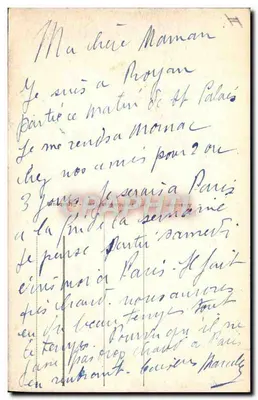 Ma chère Maman
Je suis a Royan
partie ce matin de St Palais
Je me rends a Mornac
chez nos amis pour 2 ou
3 jours Je serai a Paris
a la fin de la semaine
Je pense partir samedi
a Paris Il fait
très chaud. nous avons
eu du beau temps tout
le temps. Pourvu qu'il ne
pas trop chaud a Paris
en rentrant.